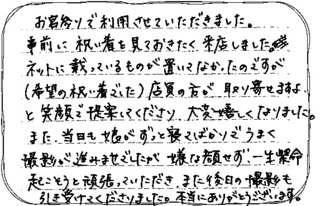 お宮参りで利用させていただきました。
事前に祝い着を見ておきたく来店しました。
ネットに載っているものが置いてなかったのですが
(希望の祝い着でした)店員の方が、取り寄せますよ
と笑顔で提案してくださり、大変嬉しくなりました。
また、当日も娘がずっと寝てばかりでうまく
撮影が進みませんでしたが嫌な顔せず、一生懸命
起こそうと頑張っていただき、また後日の撮影も
引き受けてくださりました。本当にありがとうございます。